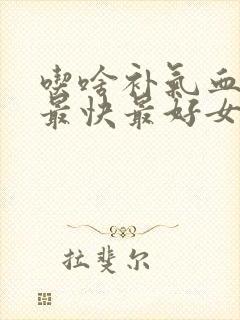 喫啥补氣血
最快最好女
拉斐尔